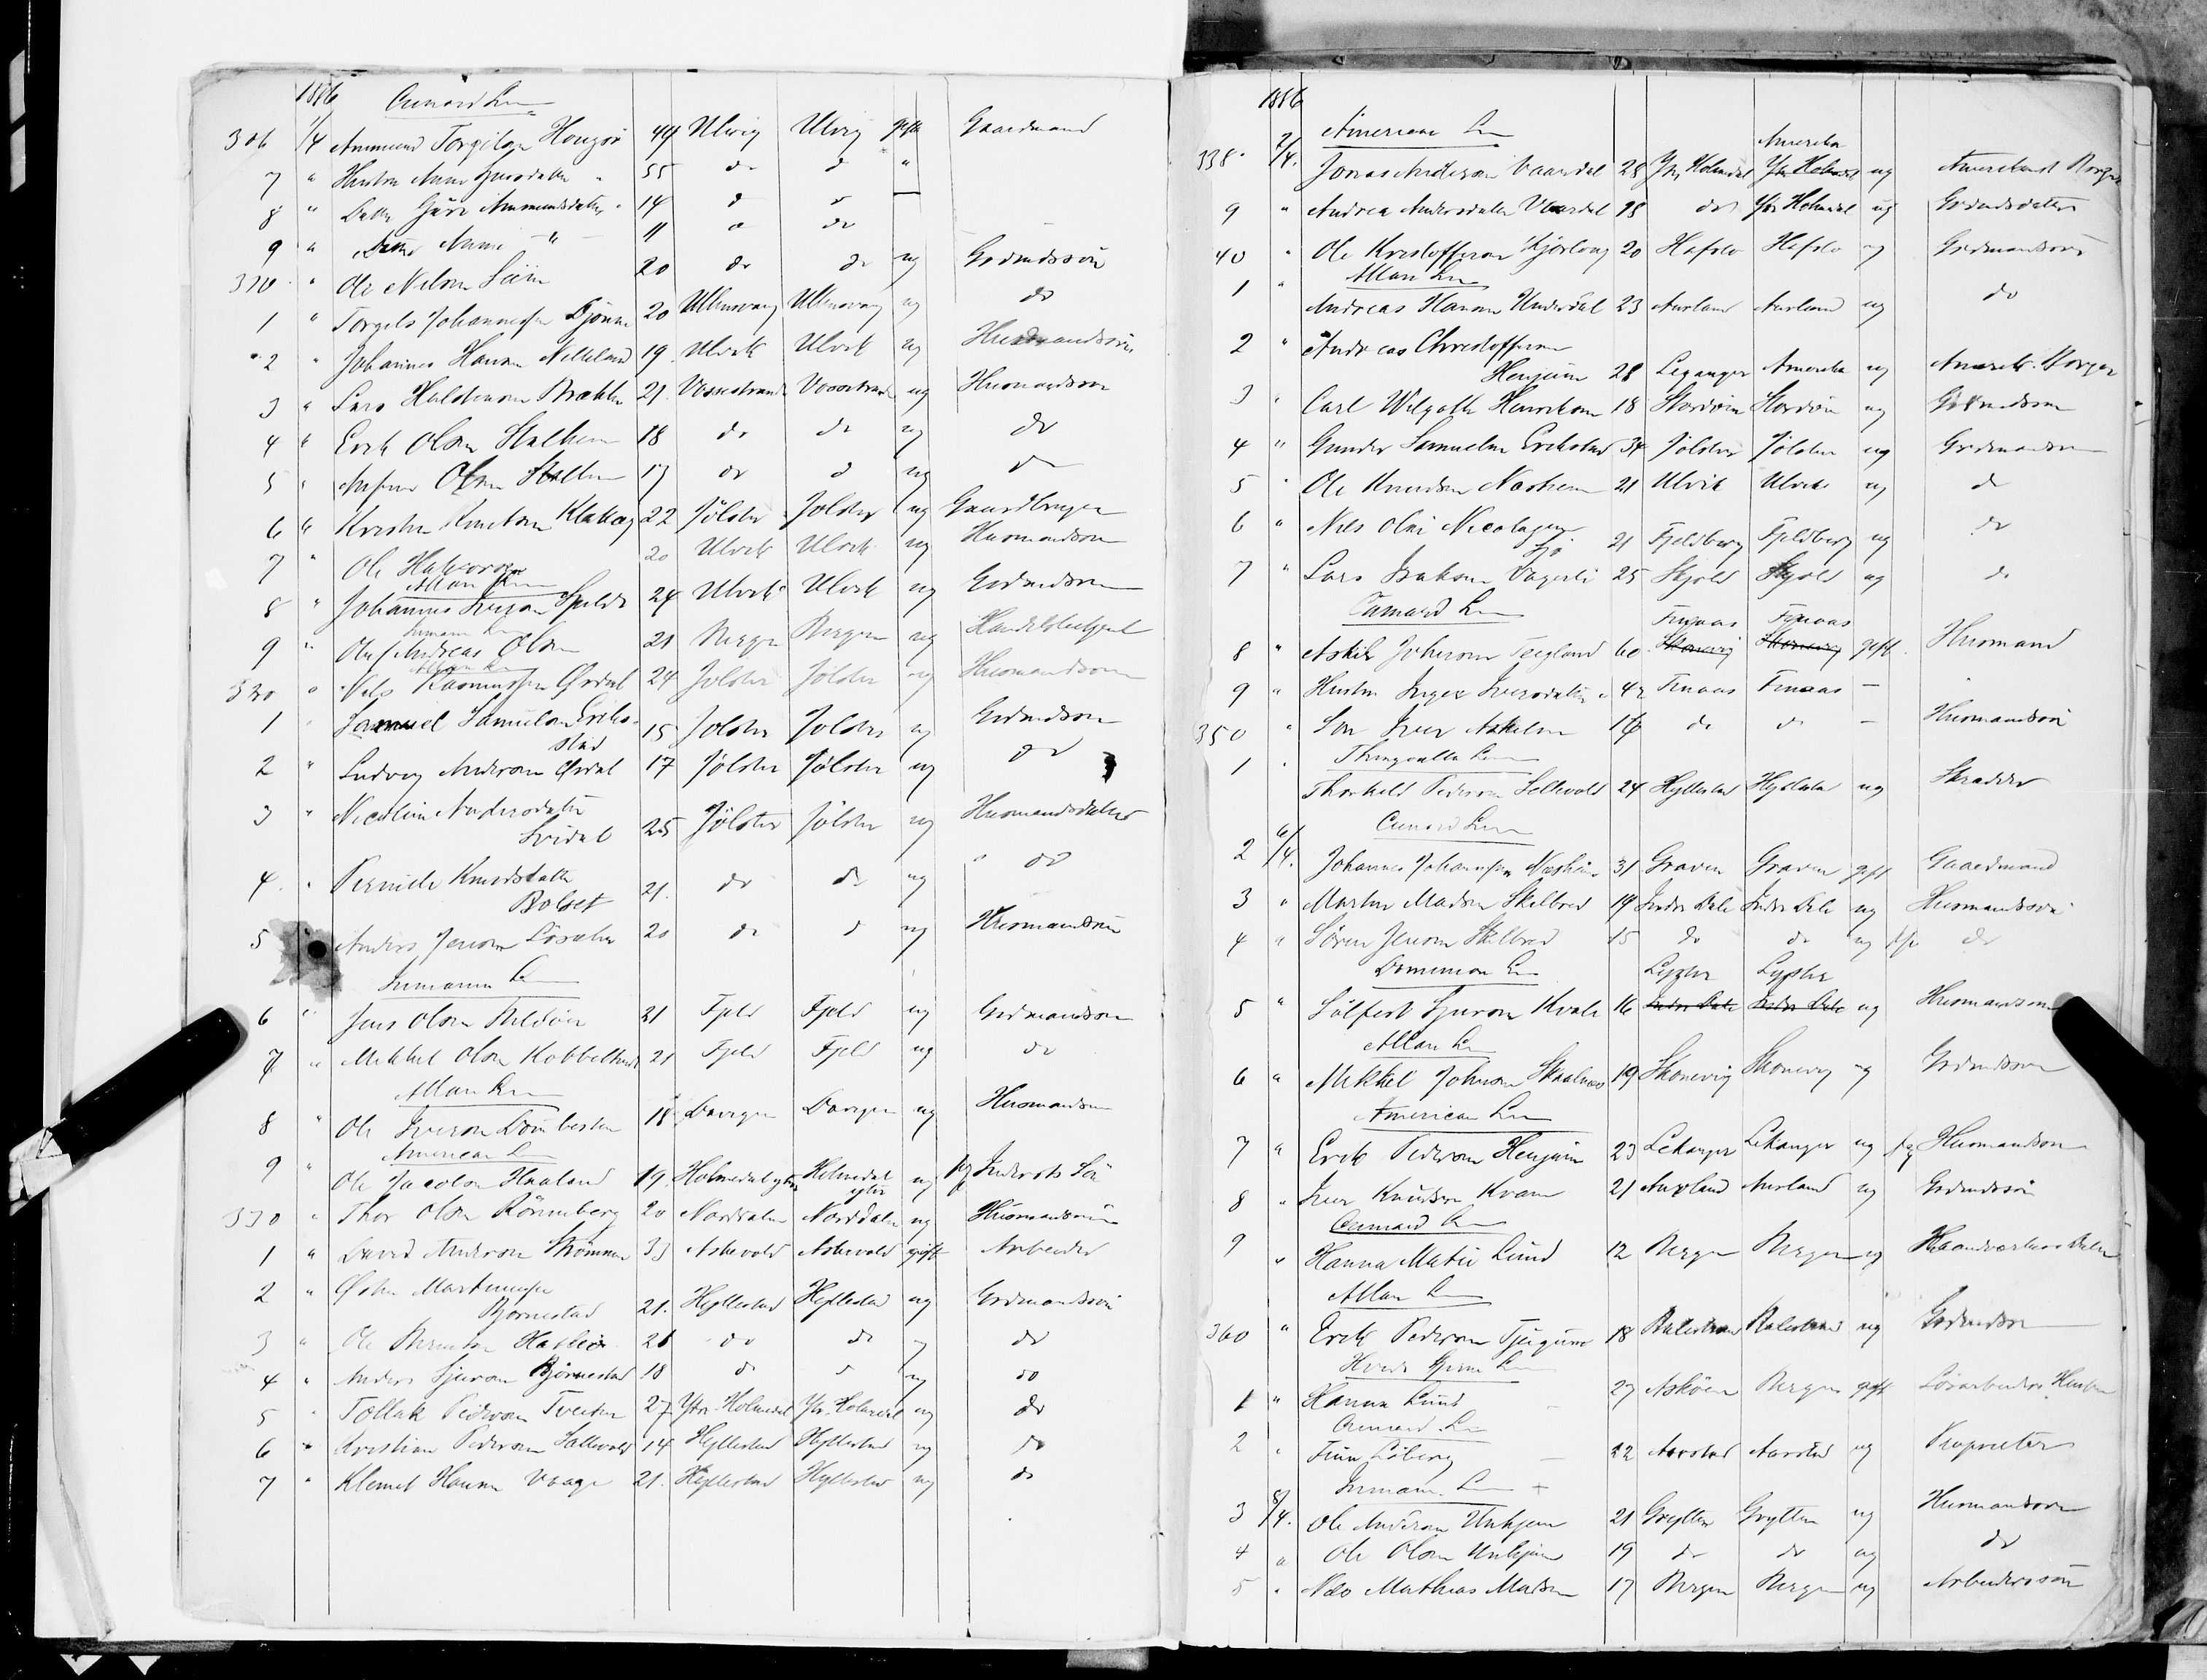 1886 Cunard L
306 1/4 Ammund Torgilsen 49 Ulvig Ulvig gift Gaardmand
7 " Hustru Anna " 55 do d "
8 " Datter Guri Ammundsdatter " 14 d d
9 " Datter Anna — " — 11 d do
310 " Ole Nilsen 20 do do ug Grdmdssön
1 " Torgils Johannessen Djönne 20 Ullensvang Ullensvang ug do
2 " Johannes Hansen 19 Ulvik Ulvik ug Husmandssön
3 " Lars Brække 21 Vossestrand Vossestrand ug Husmandssön
4 " Erik Olsen Stalheim 18 do do ug do
5 " Olsen 17 do d ug do
6 " Kristen 22 Jölster Jölster ug Gaardbruger
7 " Ole Halvorsen 20 Ulvik Ulvik ug Husmandssön
Allan L
8 " Johannes Iversen 24 Ulvik Ulvik ug Grdmdssön
Inman L
9 " Ole Andreas Olsen 21 Bergen Bergen ug
Allan L
320 " Nils Rasmussen Årdal 24 Jölster Jölster ug Husmandssön
1 " Samuel Samuelsen Eriks-
stad 15 Jölster Jölster ug Grdmdssön
2 " Ludvig Andersen Årdal 17 Jölster Jölster ug do
3 " Nicoline Andersdatter
25 Jölster Jölster ug Husmandsdatter
4 " Pernille Knudsdatter
Bolset 21. do do ug do
5 Anders Jensen 20 do d ug Husmandssön
Inman L
6 " Jens Olsen 21 Fjeld Fjeld ug Grdmandssön
7 " Mikkel Olsen 21 Fjeld Fjeld ug do
Allan L
8 " Ole Iversen Dombesten 18 Davigen Davigen ug Husmandssön
American L
9 " Ole Jacobsen Haaland 19. Holmedal ytre Holmedal
ytre ug
330 " Thor Olsen Rönneberg 20 Norddalen Norddalen ug Husmandssön
1 " David Andersen Strömmen 33 Askevold Askevold gift Arbeider
2 " Martinusen
Björnestad 21. Hyllestad Hyllestad ug Grdmandssön
3 " Ole 26 do do ug do
4 " Anders Sjursen Björnestad 18 do d ug do
5 " Tollak Pedersen Tveiten 27 Ytre Holmedal Ytr. Holmedal ug do
6 " Kristian Pedersen Sollevold 14 Hyllestad Hyllestad ug do
7 " Klemet Hansen Vaage 21. Hyllestad Hyllestad ug do
1886
American L
338 2/4. Jonas Andersen Vaardal 28 Ytr Holmedal Amerika Ytr Holmedal ug Amerikansk Borger
9 " Andrea Andersdatter Vaardal 18 do Ytr Holmedal ug Grdmdsdatter
40 " Ole Kristoffersen Kjörlaug 20 Hafslo Hafslo ug Grdmandssön
Allan L
1 " Andreas Hansen Underdal 23 Aurland Aurland ug do
2 " Andreas Christoffersen
Henjum 28 Leganger Amerika ug Amerik. Borger
3 " Carl Henriksen 18 Stordöen Stordöen ug Grdmdssön
4 " Gunder Samuelsen Erikstad 34 Jölster Jölster ug Grdmandssön
5 " Ole Knudsen Næsheim 21 Ulvik Ulvik ug d
6 " Nils Olai Nicolaysen
21 Fjeldberg Fjeldberg ug do
7 " Lars Isaksen Vågeli 25 Skjold Skjold ug do
Cunard L
Finaas Finaas
8 " Askil Johnsen Teigland 60 Skonevig Skonevig gift Husmand
9 " Hustru Inger Iversdatter " 42 Finaas Finaas —
350 " Sön Iver Askilsen 16 do do — Husmandssön
Thingvalla L
1 " Thorkild Pedersen Sollevold 24 Hyllestad Hyllestad ug Skrædder
Cunard L
2 6/4. Johannes Johannessen Næsheim 31 Graven Graven gift Gaardmand
3 " Martin Madsen Skilbred 19 Indre Dale Indre Dale ug Husmandssön
4 " Sören Jensen Skilbred 15 do do ug do
Dominion L
Lyster Lyster
5 " Sjursen Kvale 16 Indre Dale Indre Dale ug Husmandssön
Allan L
6 " Mikkel Johnsen 19 Skonevig Skonevig ug Grdmdssön
American L
7 " Erik Pedersen Henjum 23 Lekanger Lekanger ug Husmandssön
8 " Iver Knudsen Kvam 21 Aurland Aurland ug Grdmdssön
Cunard L
9 " Hanna Matie Lund 12 Bergen Bergen ug
Allan L
360 " Erik Pedersen Tjugum 18 Balestrand Balestrand ug Grdmdssön
L
1 " Hanna Lund 27 Asköen Bergen gift
Cunard L
2 " Finn Löberg — 22 Aarstad Aarstad ug Proprietær
Inman L +
3 8/4. Ole Andersen Unhjem 21 Grytten Grytten ug Husmandssön
4 " Ole Olsen Unhjem 19 do do ug do
5 " Mathias Madsen 17 Bergen Bergen ug Arbeiderssön